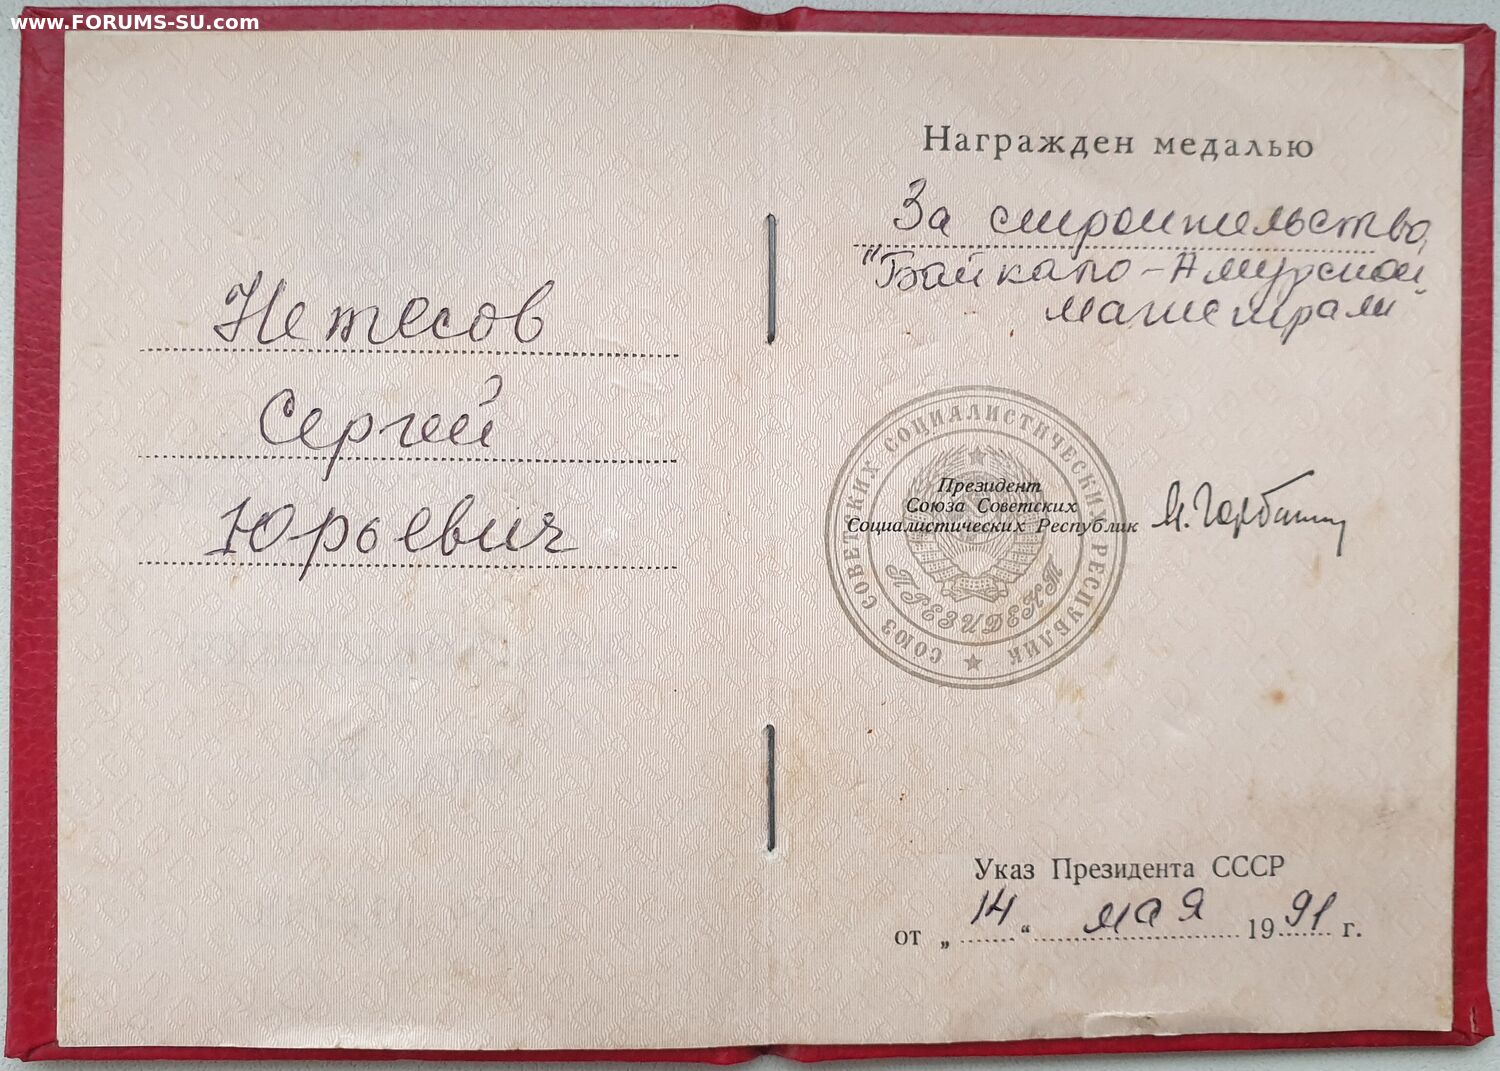 www.FORUMS-SU.com
Нетесов
Сергей
Юрьевич
Награжден медалью
За строительство
"Байкало-Амурской
магистрали"
СОЮЗ СОВЕТСКИХ СОЦИАЛИСТИЧЕСКИХ РЕСПУБЛИК
ПРЕЗИДЕНТ
Президент
Союза Советских
Социалистических Республик
М. Горбачев
Указ Президента СССР
от „14“ мая 1991 г.